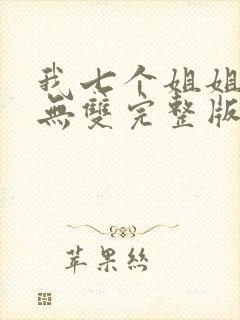 我七个姐姐
無雙完整版
苹果絲